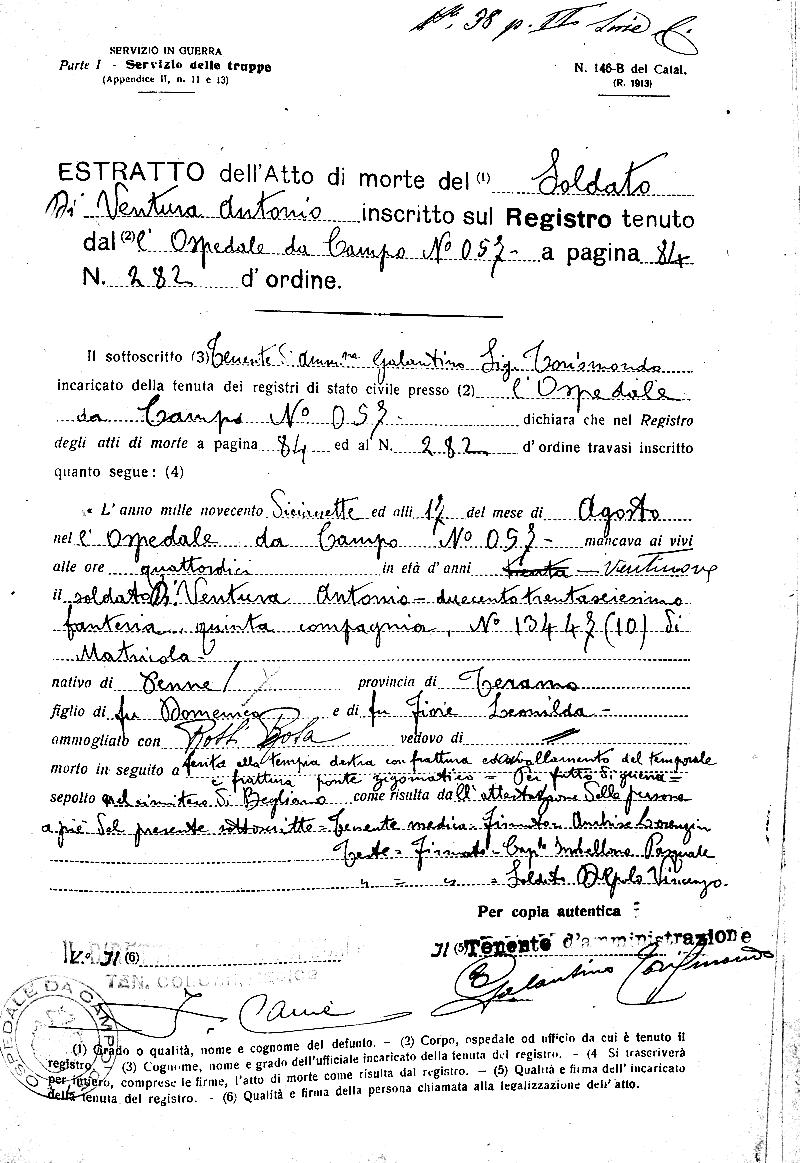 N° 38 p. II Serie C.
SERVIZIO IN GUERRA
Parte I - Servizio delle truppe
(Appendice II, n. 11 e 13)
N. 146-B del Catal.
(R. 1913)
ESTRATTO dell'Atto di morte del (1) Soldato
Di Ventura Antonio inscritto sul Registro tenuto
dal (2) l' Ospedale da Campo N° 057- a pagina 84
N. 282 d' ordine.
Il sottoscritto (3) Tenente d'amm.ne Galantino Sig. Torismondo
incaricato della tenuta dei registri di stato civile presso (2) l'Ospedale
da Campo N° 057- dichiara che nel Registro
degli atti di morte a pagina 84 ed al N. 282 d'ordine travasi inscritto
quanto segue: (4)
« L'anno mille novecento ed alli 17 del mese di Agosto
nel l' Ospedale da Campo N° 057- mancava ai vivi
alle ore quattordici in età d'anni trenta - Ventinove
il soldato Di Ventura Antonio - duecentotrentaseiesimo
fanteria, quinta compagnia, N° 13447 (10) di
Matricola -
nativo di Penne provincia di Teramo
figlio di fu Domenico e di fu Fiore Leonilda -
ammogliato con Rosa vedovo di
morto in seguito a ferita alla tempia destra con frattura ed avallamento del temporale
e frattura ponte zigomatico = Per fatto di guerra =
sepolto nel cimitero di Begliano come risulta dall'attestazione delle persone
a piè del presente sottoscritto = Tenente medico = Firmato = Lorenzin
Teste = Firmato = Cap.le Indellone Pasquale
" = " = Soldato Vincenzo.
Per copia autentica :
V.° Il (6)
Il (5) Tenente d'amministrazione
TEN. COLONN. MEDICO
Galantino Torismondo
OSPEDALE DA CAMPO
(1) Grado o qualità, nome e cognome del defunto. - (2) Corpo, ospedale od ufficio da cui è tenuto il
registro. - (3) Cognome, nome e grado dell'ufficiale incaricato della tenuta del registro. - (4 Si trascriverà
per intiero, comprese le firme, l'atto di morte come risulta dal registro. - (5) Qualità e firma dell' incaricato
della tenuta del registro. - (6) Qualità e firma della persona chiamata alla legalizzazione dell' atto.